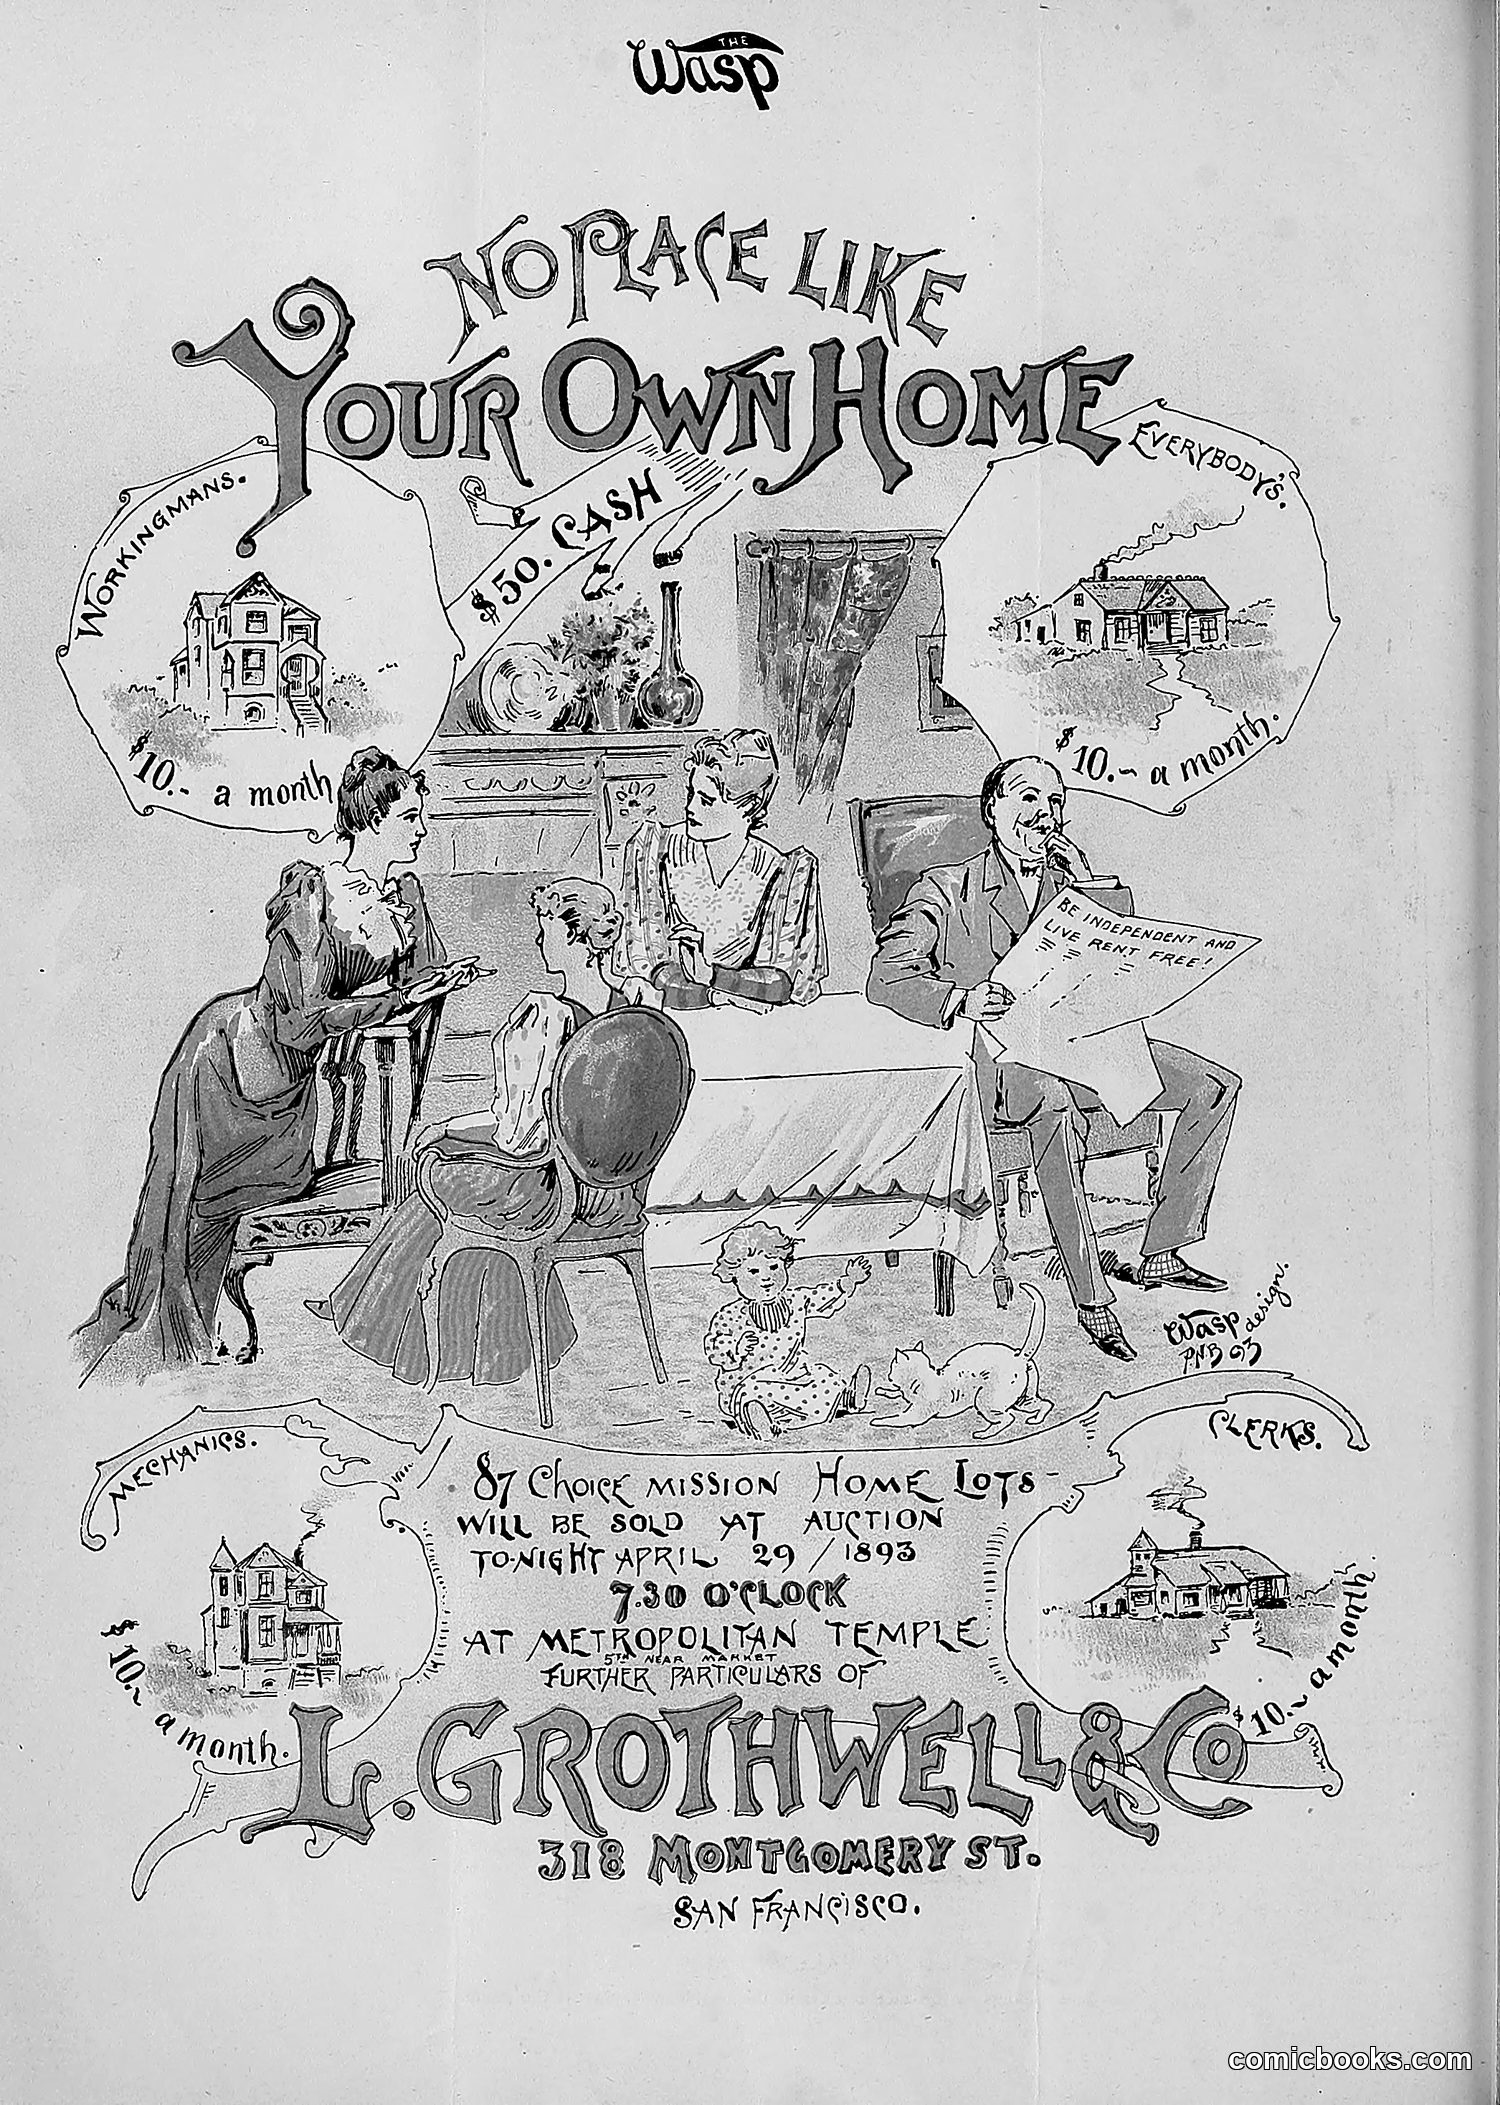 THE
Wasp
NO PLACE LIKE
YOUR OWN HOME
WORKINGMANS.
$10.- a month
$50. CASH
EVERYBODY'S.
$10.- a month.
BE INDEPENDENT AND
LIVE RENT FREE!
Wasp
design.
PNB 93
MECHANICS.
$10.- a month.
CLERKS.
$10.- a month.
87 CHOICE MISSION HOME LOTS
WILL BE SOLD AT AUCTION
TO-NIGHT APRIL 29/1893
7.30 O'CLOCK
AT METROPOLITAN TEMPLE
5TH NEAR MARKET
FURTHER PARTICULARS OF
L. GROTHWELL & CO
318 MONTGOMERY ST.
SAN FRANCISCO.
comicbooks.com